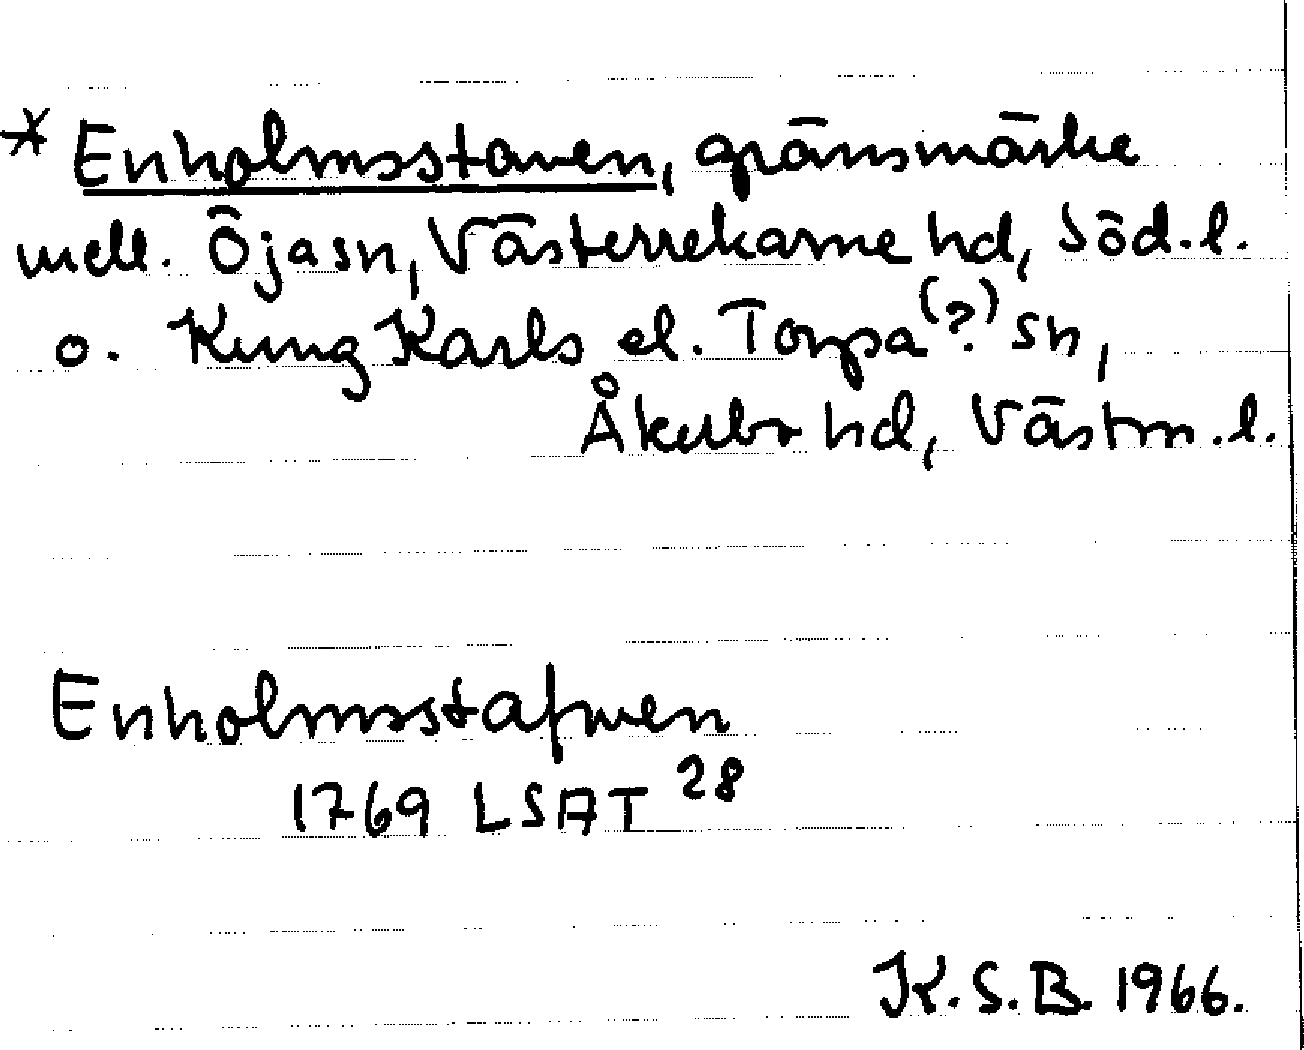 * Enholmsstaven, gränsmärke
mell. Öja sn, Västerrekarne hd, Söd. l.
o. Kung Karls el. Torpa (?) sn,
Åkerbo hd, Västm. l.
Enholmsstafwen
1769 LSAT 28
K. S. B. 1966.